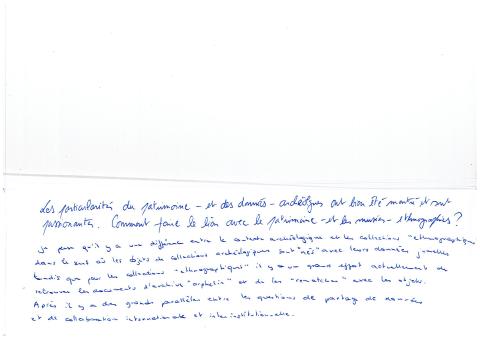 Les particularités du patrimoine - et des données - archéolgues ont bien été montré et sont
passionantes. Comment faire le lien avec le patrimoine - et les musées - ethnographies ?
je pense qu'il y a une différence entre le contexte archéologique et les collections "ethnographiques
dans le sens où les objets de collections archéologiques sont "nés" avec leurs données jumelles
tandis que pour les collections "ethnographiques" il y a un grand effort actuellement de
retrouver les documents d'archive "orphelins" et de les "rematcher" avec les objets.
Après il y a des grands parallèles entre les questions de partage de données
et de collaboration internationale et interinstitutionnelle.